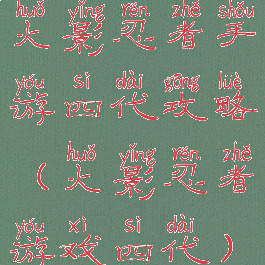 huǒ yǐng rěn zhě shǒu
火影忍者手
yóu sì dài gōng lüè
游四代攻略
huǒ yǐng rěn zhě
（火影忍者
yóu xì sì dài
游戏四代）